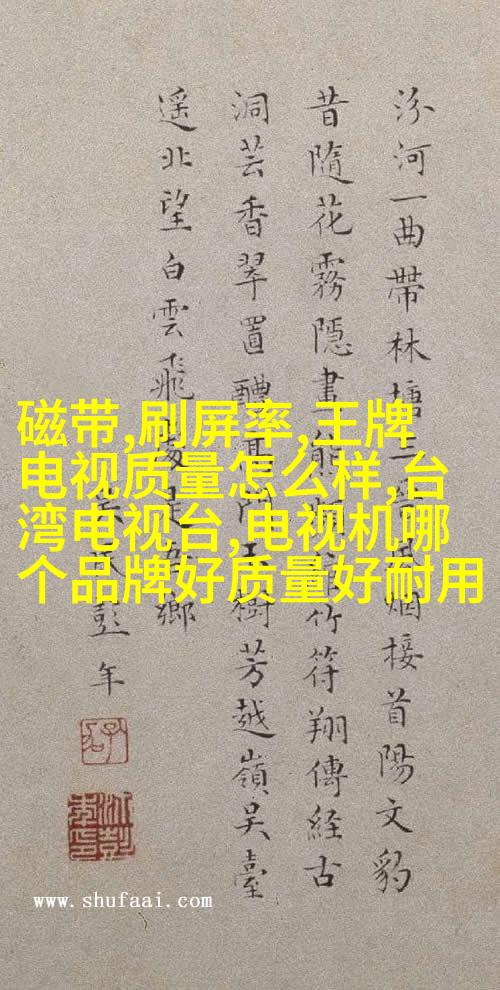 磁带,刷屏率,王牌
电视质量怎么样,台
湾电视台,电视机哪
个品牌好质量好耐用
汾河一曲帶林塘三烟接首陽文豹
昔隨花霧隱畫能竹符翔傳經古
洞芸香翠置醴高樹芳越嶺吳臺
遥北望白雲飛處是鄉
彭年
www.shufaai.com